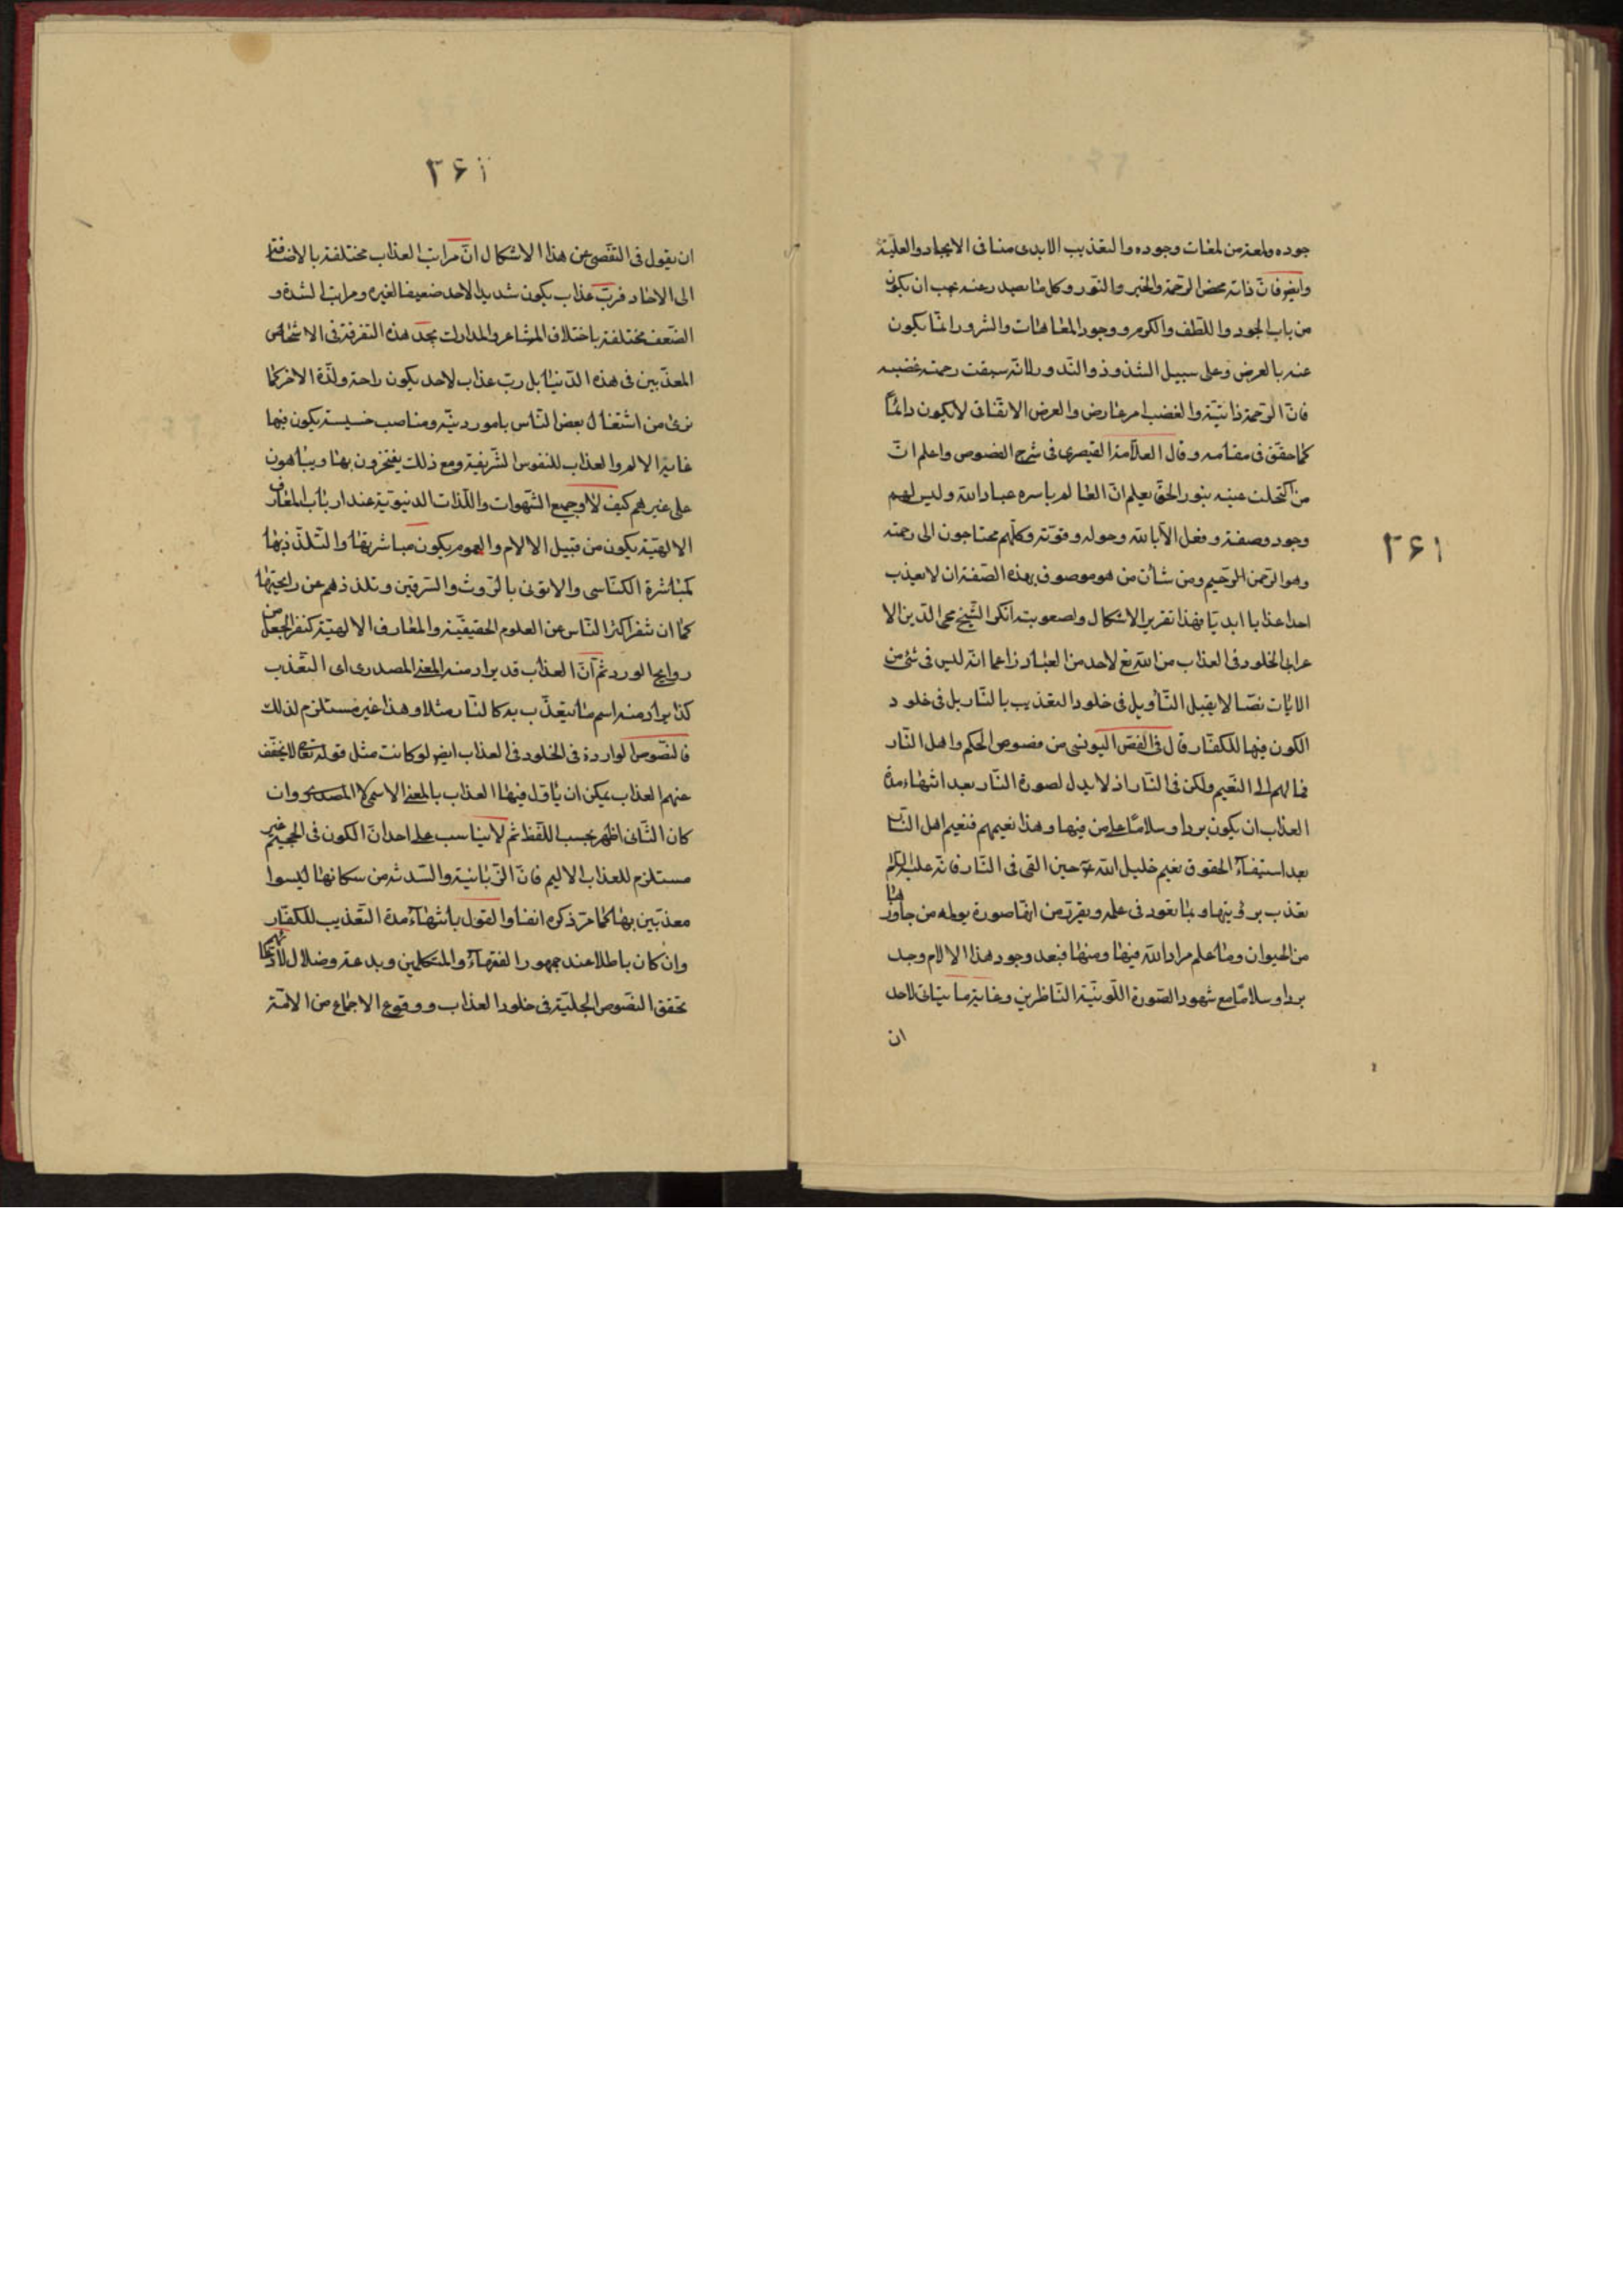 جوده ولمعة من لمعات وجوده والتعذيب الابدى مناف الايجاد والعليّة
وايضا فانّ ذاته محض الرّحمة والخير والنّور وكل ما يصدر عنه يجب ان يكون
من باب الجود واللّطف والكرم ووجود العاهات والشرور انّما يكون
عنه بالعرض وعلى سبيل الشذوذ والنّدور لانّه سبقت رحمته غضبه
فانّ الرّحمة ذاتيّة والغضب امر عارض والعرض الاتّفاقى لا يكون دائماً
كما حقق فى مقامه وقال العلاّمة القيصرى فى شرح الفصوص واعلم انّ
من اكتحلت عينه بنور الحقّ يعلم انّ العالم باسره عباد الله وليس لهم
وجود وصفة وفعل الاّ بالله وحوله وقوّته وكلّهم محتاجون الى رحمته
وهو الرّحمن الرّحيم ومن شأن من هو موصوف بهذه الصّفة ان لا يعذب
احدا عذابا ابديّا فهذا تقرير الاشكال ولصعوبته انكر الشّيخ محى الدّين الا
عرابى الخلود فى العذاب من الله تع لاحد من العباد زاعما انّه ليس فى شئ من
الايات نصّا لا يقبل التّأويل فى خلود التعذيب بالنّار بل فى خلود
الكون فيها للكفّار قال فى الفصّ اليونسى من فصوص الحكم واهل النّار
فمالهم الى النّعيم ولكن فى النّار اذ لا بدل لصورة النّار بعد انتهاء مدة
العذاب ان يكون بردا وسلامًا على من فيها وهذا نعيمهم فنعيم اهل النّار
بعد استيفاء الحقوق نعيم خليل الله ع حين القى فى النّار فانّه عليه السّلام
تعذب برؤيتها وبما تعوّد فى علمه وتقرّر من انّها صورة يوله من جاورها
من الحيوان وما علم مراد الله فيها ومنها فبعد وجود هذا الالام وجد
بردا وسلامًا مع شهود الصّورة اللّونيّة النّاظرين وغاية ما يتأتى لاحد
ان
٣٦١
٣٦١
ان يقول فى التّفصّى عن هذا الاشكال انّ مراتب العذاب مختلفة بالاضافة
الى الاحاد فربّ عذاب يكون شديدا لاحد ضعيفا لغيره ومراتب الشدّة و
الضّعف مختلفة باختلاف المشاعر والمدارك بحدّ هذه التفرقة فى الاشخاص
المعذّبين فى هذه الدّنيا بل ربّ عذاب لاحد يكون راحة ولذّة الاخر كما
نرى من اشتغال بعض النّاس بامور دنيّة ومناصب خسيسة يكون فيها
غاية الالم والعذاب للنفوس الشّريفة ومع ذلك يفتخرون بها ويباهون
على غيرهم كيف لا وجميع الشّهوات واللّذات الدنيويّة عند ارباب المعارف
الالهيّة يكون من قبيل الالام والهموم يكون مباشرتها والتّلذّذ بها
كمباشرة الكنّاسى والاتونى بالرّوث والسّرقين وتلذذهم عن رايحتها
كما ان تنفر اكثر النّاس عن العلوم الحقيقيّة والمعارف الالهيّة كنفر الجعل من
روايح الورد ثم انّ العذاب قد يراد منه المعنى المصدرى اى التّعذب
كذا يراد منه اسم ما يتعذّب به كالنّار مثلا وهذا غير مستلزم لذلك
فالنّصوص الواردة فى الخلود فى العذاب ايضا لو كانت مثل قوله تعالى لا يخفّف
عنهم العذاب يمكن ان يأوّل فيها العذاب بالمعنى الاسمى لا المصدرى وان
كان الثّانى اظهر بحسب اللّفظ ثم لا يناسب على احد انّ الكون فى الجحيم غير
مستلزم للعذاب الاليم فانّ الزّبانية والسّدنة من سكانها ليسوا
معذّبين بها كما مرّ ذكره انفا والقول بانتهاء مدة التّعذيب للكفّار
وان كان باطلا عند جمهور الفقهاء والمتكلمين وبدعة وضلال لادّعائهم
تحقق النّصوص الجليّة فى خلود العذاب ووقوع الاجماع من الامّة